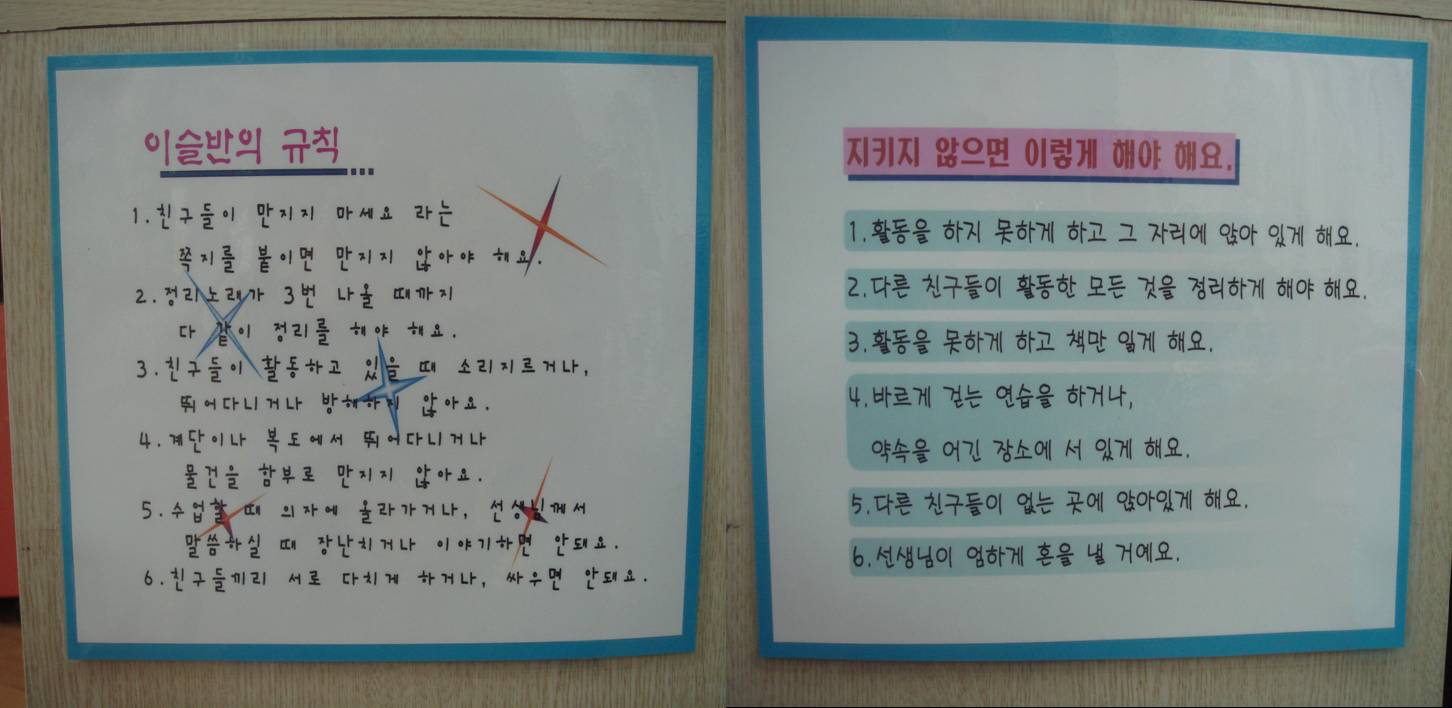 이슬반의 규칙
1.친구들이 만지지 마세요 라는
쪽지를 붙이면 만지지 않아야 해요.
2.정리노래가 3번 나올 때까지
다 같이 정리를 해야 해요.
3.친구들이 활동하고 있을 때 소리지르거나,
뛰어다니거나 방해하지 않아요.
4.계단이나 복도에서 뛰어다니거나
물건을 함부로 만지지 않아요.
5.수업할 때 의자에 올라가거나, 선생님께서
말씀하실 때 장난치거나 이야기하면 안돼요.
6.친구들끼리 서로 다치게 하거나, 싸우면 안돼요.
지키지 않으면 이렇게 해야 해요.
1.활동을 하지 못하게 하고 그 자리에 앉아 있게 해요.
2.다른 친구들이 활동한 모든 것을 정리하게 해야 해요.
3.활동을 못하게 하고 책만 읽게 해요.
4.바르게 걷는 연습을 하거나,
약속을 어긴 장소에 서 있게 해요.
5.다른 친구들이 없는 곳에 앉아있게 해요.
6.선생님이 엄하게 혼을 낼 거예요.